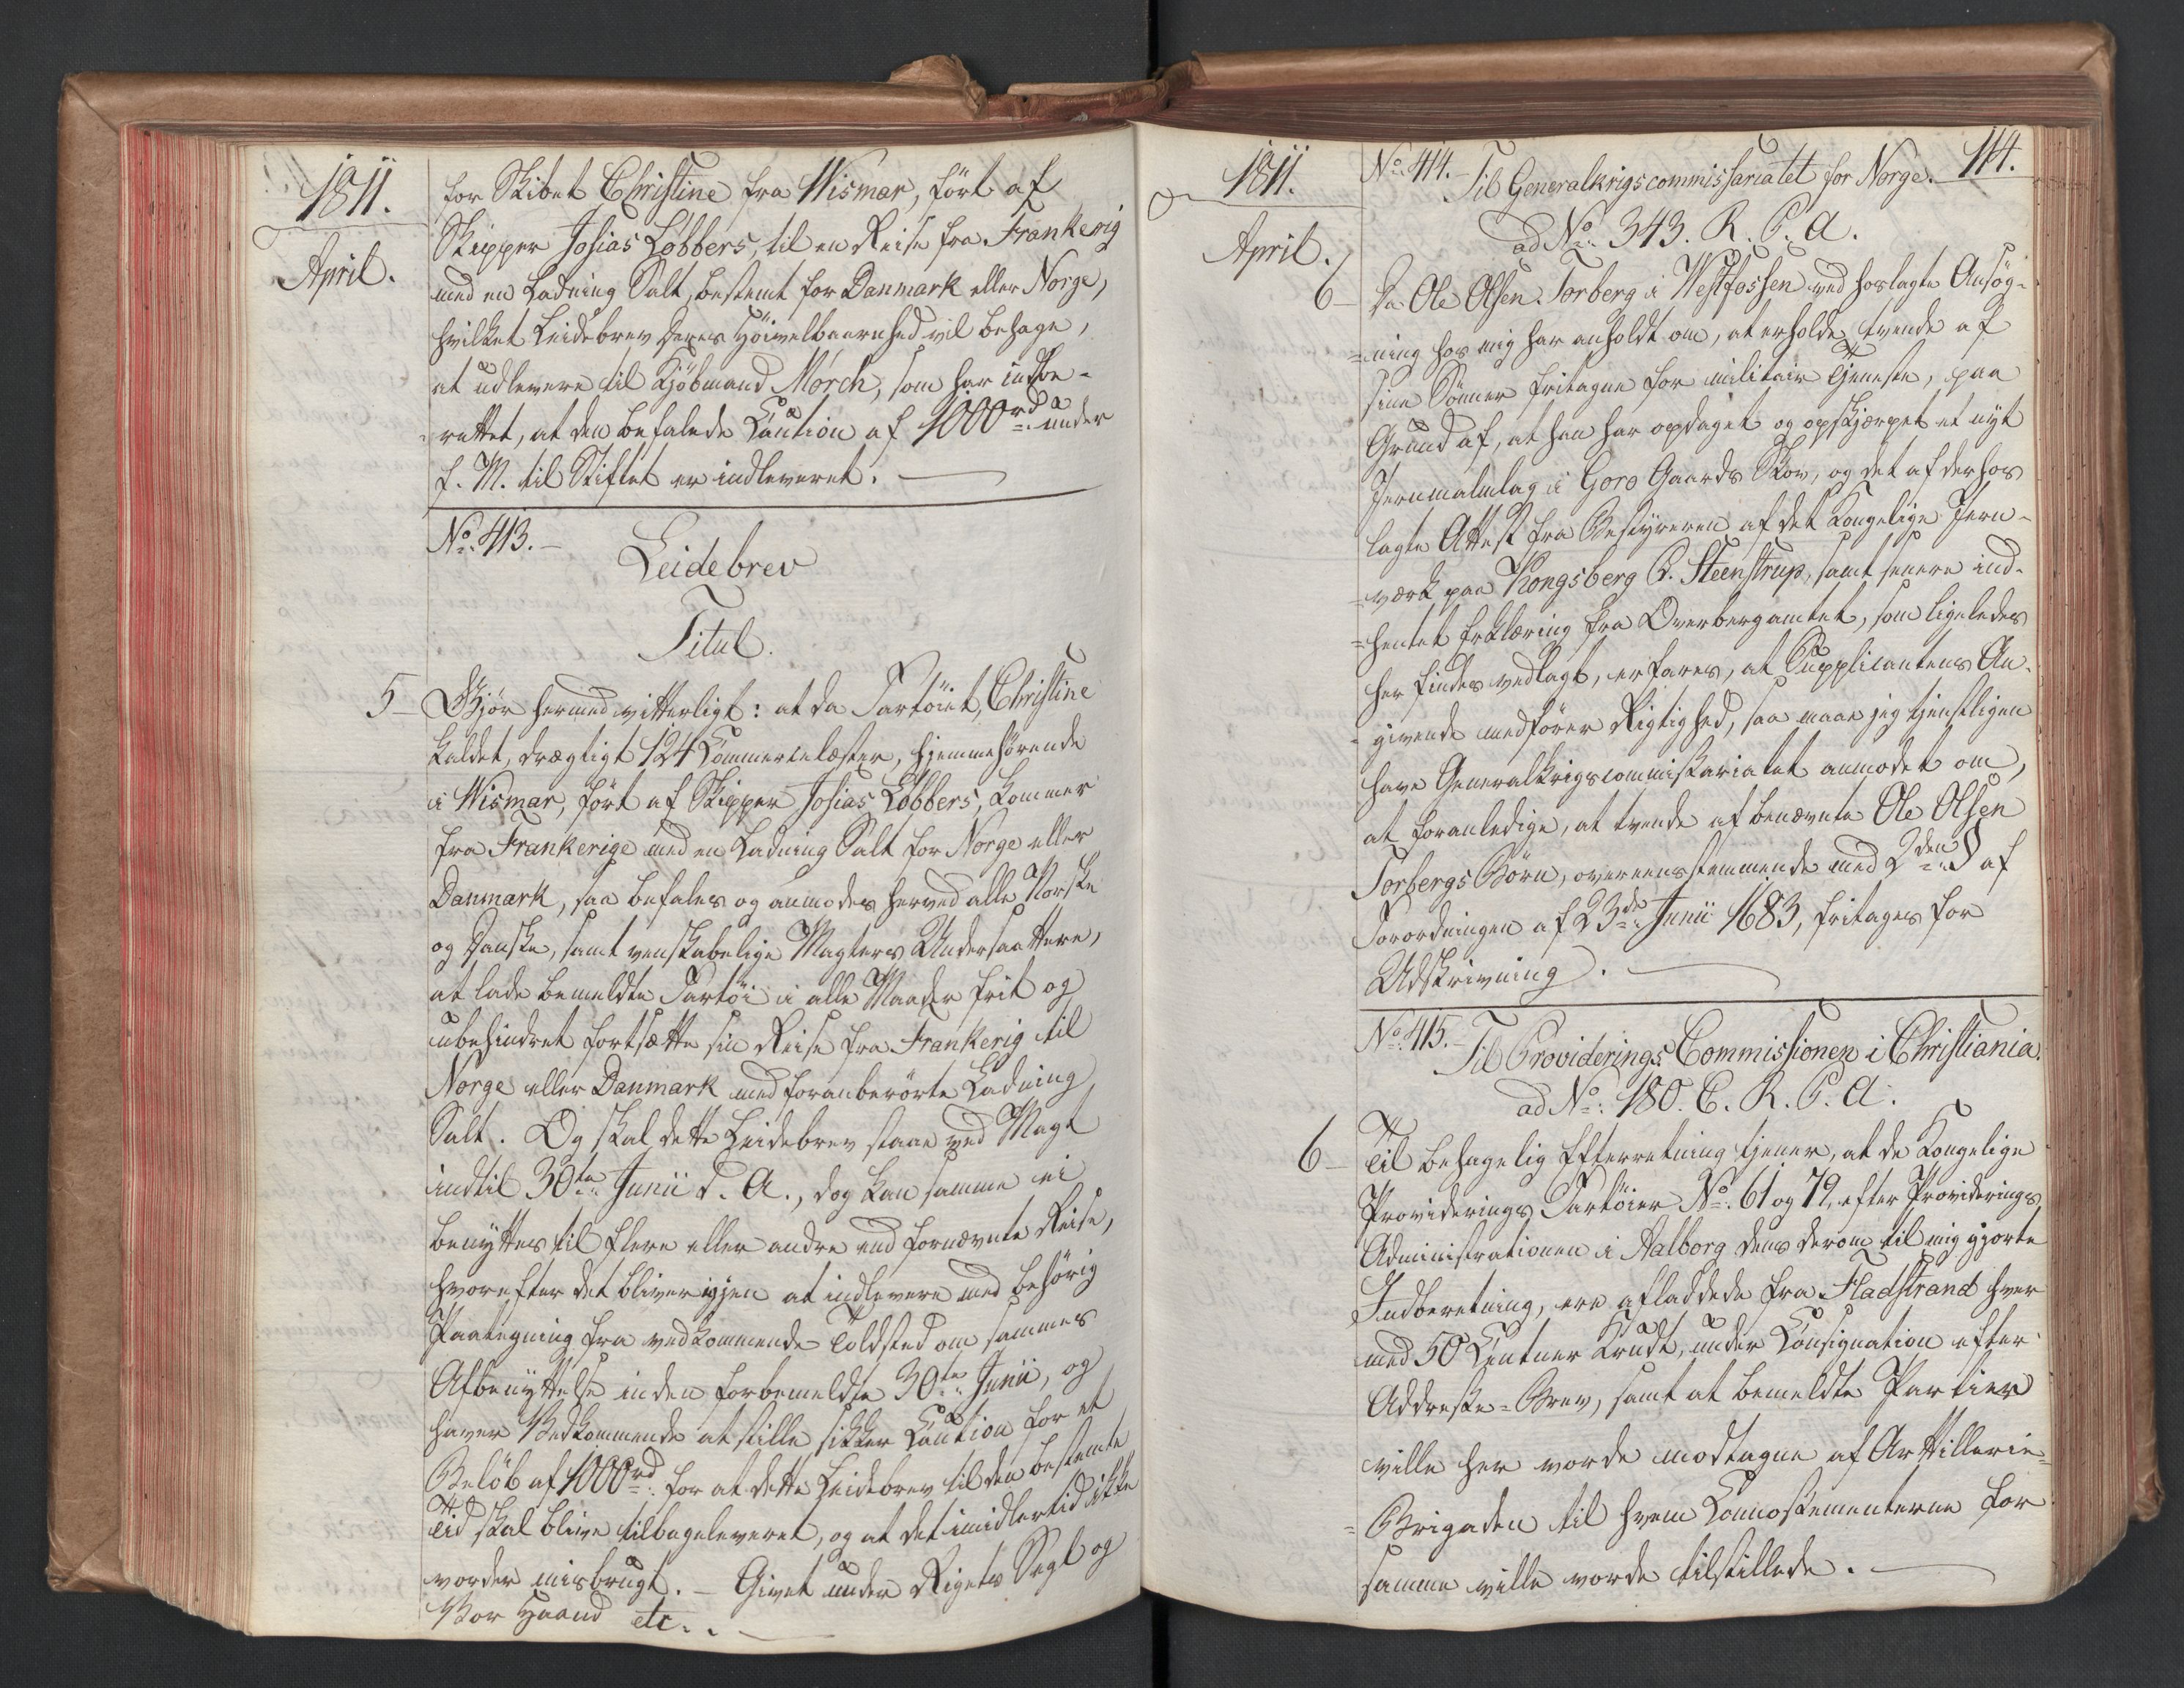 1811.
April.
for Skibet Christine fra Wismar, ført af
Skipper Josias Löbbers, til en Reise fra Frankerig
med en Ladning Salt, bestemt for Danmark eller Norge,
hvilket Leidebrev Deres Höivelbaarnhed vil behage,
at udlevere til Kjöbmand Mörch, som har indbe-
rettet, at den befalede Caution af 1000 rd under
f. M. til Stiftet er indleveret.
No. 413.
Leidebrev
Titul.
5 - Gjør hermed vitterligt: at da Fartöiet, Christine
kaldet, drægtigt 124 Commercelæster, hjemmehörende
i Wismar, fört af Skipper Josias Löbbers, kommer
fra Frankerige med en Ladning Salt for Norge eller
Danmark, saa befales og anmodes herved alle Norske
og Danske, samt venskabelige Magters Undersaattere,
at lade bemeldte Fartöi i alle Maader frit og
ubehindret fortsætte sin Reise fra Frankerig til
Norge eller Danmark med foranberörte Ladning
Salt. Og skal dette Leidebrev staae ved Magt
indtil 30te Junii d. A., dog kan samme ei
benyttes til flere eller andre end fornævnte Reise,
hvorefter det bliver igjen at indlevere med behörig
Paategning fra vedkommende Toldsted om sammes
Afbenyttelse inden forbemeldte 30te Junii, og
haver Vedkommende at stille sikker Caution for et
Belöb af 1000 rd: for at dette Leidebrev til den bestemte
Tid skal blive tilbageleveret, og at det imidlertid ikke
vorder misbrugt. - Givet under Rigets Segl og
Vor Haand etc..
1811.
April.
114.
No. 414. - Til Generalkrigscommissariatet for Norge.
ad No. 343. R. P. A.
6 - Da Ole Olsen Torberg i Westfossen ved hoslagte Ansög-
=ning hos mig har anholdt om, at erholde tvende af
sine Sönner fritagne for militair Tjeneste, paa
Grund af, at han har opdaget og opskjærpet et nyt
Jernmalmlag i Goro Gaards Skov, og det af derhos
lagte Attest fra Bestyreren af det Kongelige Jern-
=værk paa Kongsberg P. Steenstrup, samt senere ind-
=hentet Erklæring fra Overbergamtet, som ligeledes
her findes vedlagt, erfares, at Supplicantens An-
=givende medförer Rigtighed, saa maae jeg tjenstligen
have Generalkrigscommissariatet anmodet om,
at foranledige, at tvende af benævnte Ole Olsen
Torbergs Börn, overeensstemmende med 2den § af
Forordningen af 23de Junii 1683, fritages for
Udskrivning.
No. 415. - Til Providerings Commissionen i Christiania.
ad No. 180. C. R. P. A.
6 - Til behagelig Efterretning tjener, at de Kongelige
Providerings Fartöier No. 61 og 79, efter Providerings
Administrationen i Aalborg dens derom til mig gjorte
Indberetning, ere afladdede fra Fladstrand hver
med 50 Centner Krudt, under Consignation efter
Addresse=Brev, samt at bemeldte Partier
ville her vorde modtagne af Artillerie-
=Brigaden til hvem Connossementerne for
samme ville vorde tilstillede.